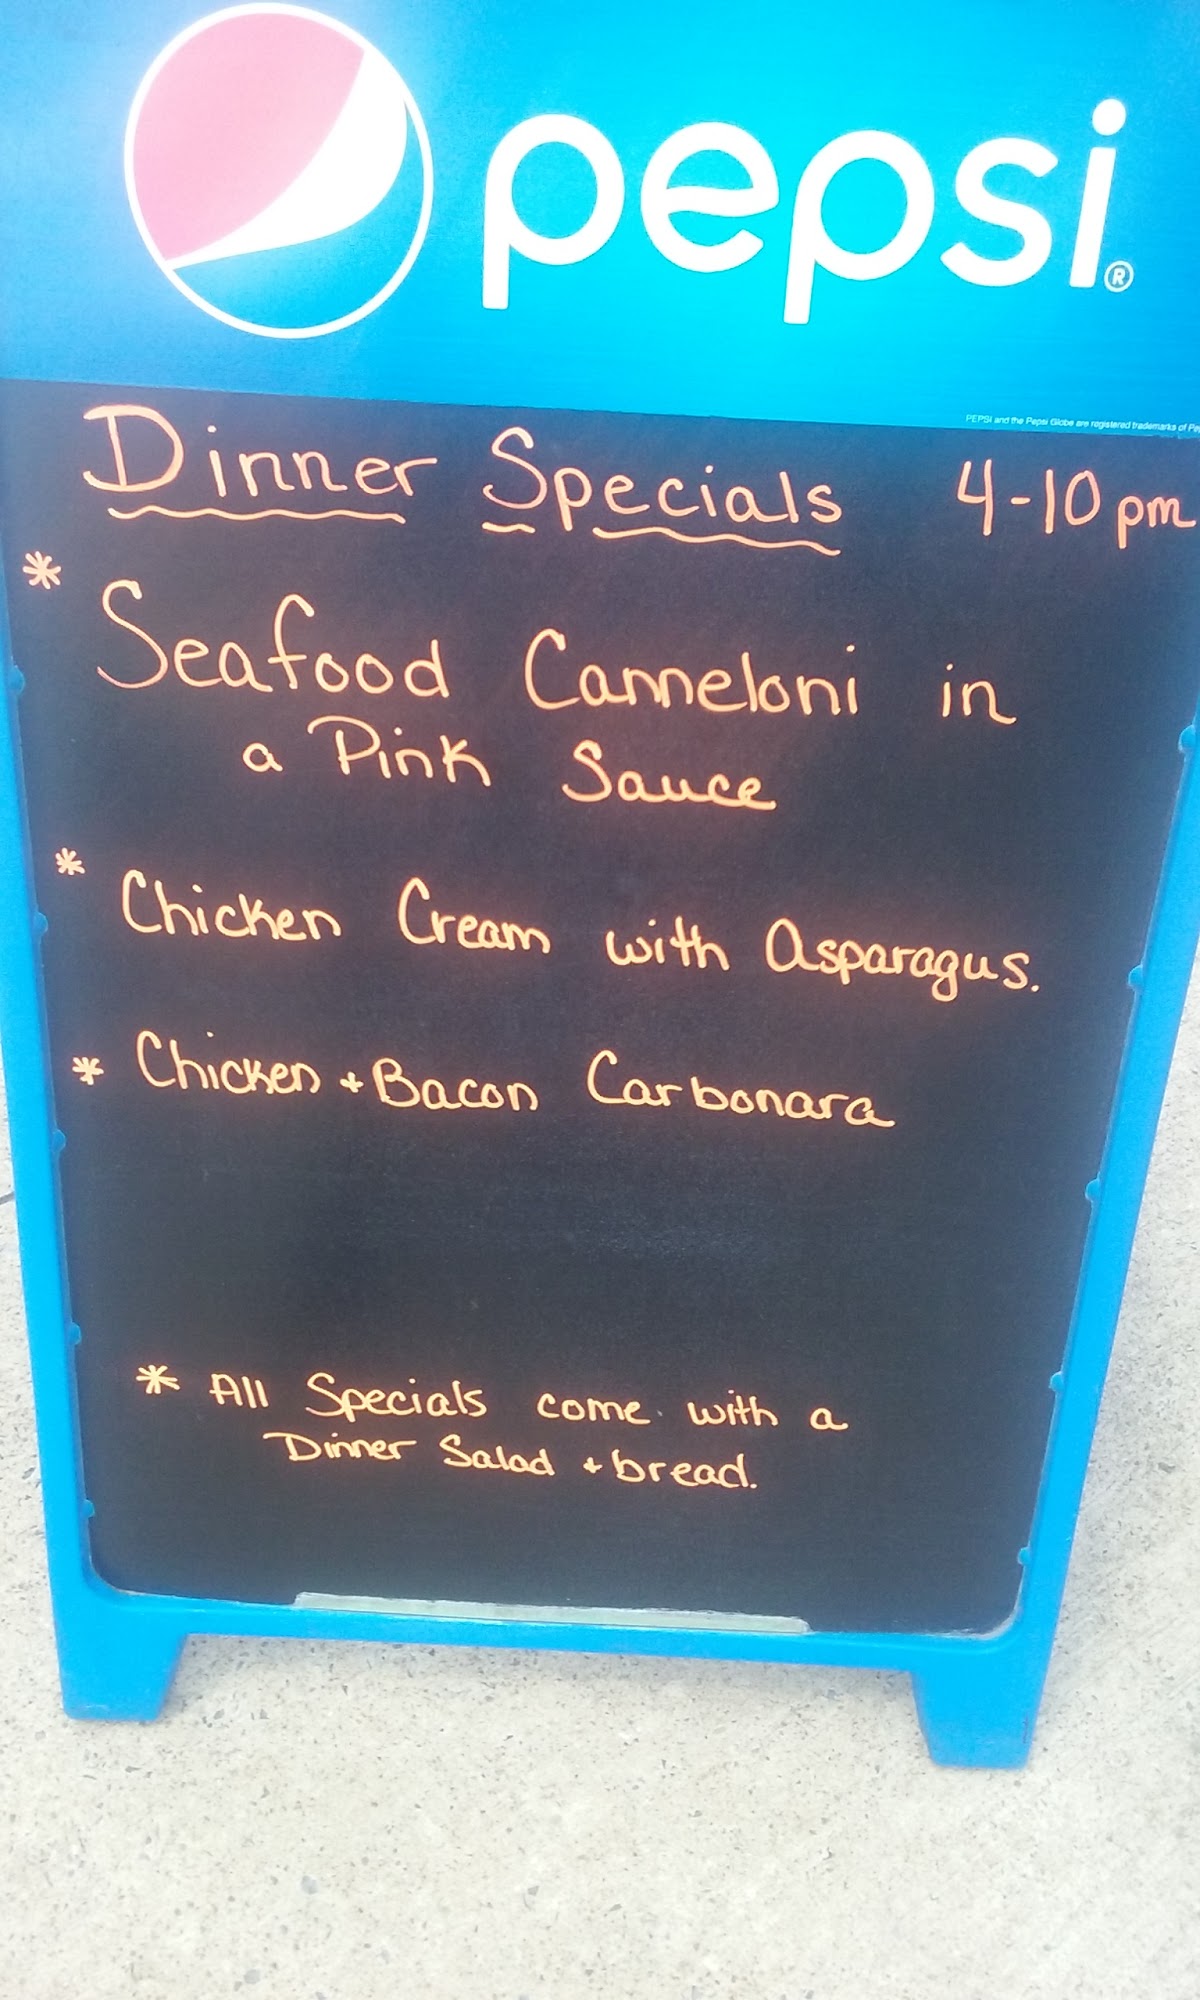 pepsi®
PEPSI and the Pepsi Globe are registered trademarks of
Dinner Specials 4-10pm
* Seafood Canneloni in
a Pink Sauce
* Chicken Cream with Asparagus.
* Chicken + Bacon Carbonara
* All Specials come with a
Dinner Salad + bread.